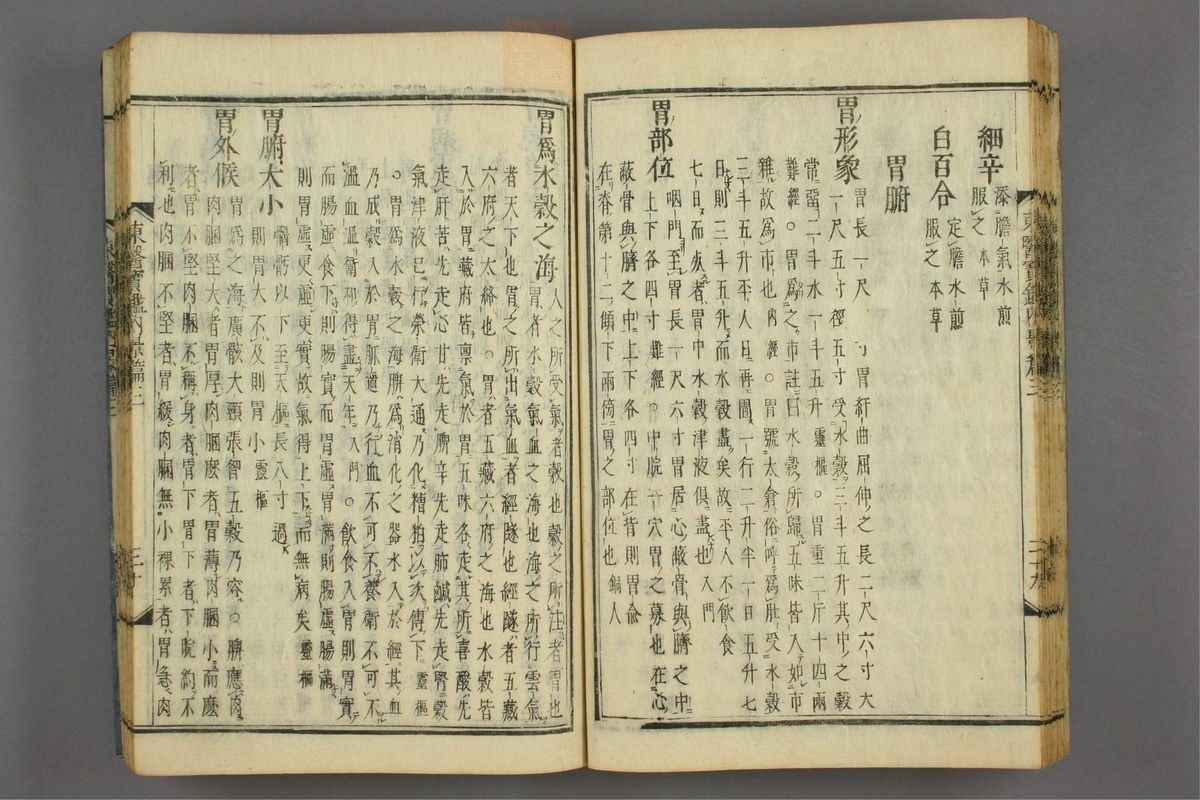 細辛 添膽氣水煎
服之本草
白百合 定膽水煎
服之本草
胃腑
胃形象 胃長一尺 胃紆曲屈伸之長二尺六寸大
一尺五寸徑五寸受水穀三斗五升其中之穀
常留二斗水一斗五升靈樞○胃重二斤十四兩
難經○胃爲之市註曰水穀所歸五味皆入如市
雜故爲市也內經○胃號太倉俗呼爲肚受水穀
三斗五升平人日再圊一行二升半一日五升七
日則三斗五升而水穀盡矣故平人不飮食
七日而死者胃中水穀津液俱盡也入門
胃部位 咽門至胃長一尺六寸胃居心蔽骨與臍之中
上下各四寸難經○中脘一穴胃之募也在心
蔽骨與臍之中上下各四寸在背則胃兪
在脊第十二傾下兩傍胃之部位也銅人
東醫寶鑑內景篇三 二十九
胃爲水穀之海 人之所受氣者穀也穀之所注者胃也
胃者水穀氣血之海也海之所行雲氣
者天下也胃之所出氣血者經隧也經隧者五藏
六府之大絡也○胃者五藏六府之海也水穀皆
入於胃藏府皆稟氣於胃五味各走其所喜酸先
走肝苦先走心甘先走脾辛先走肺鹹先走腎穀
氣津液已行榮衛大通乃化糟粕以次傳下靈樞
○胃爲水穀之海脾爲消化之器水入於經其血
乃成穀入於胃脈道乃行血不可不養衛不可不
溫血溫衛和得盡天年入門○飮食入胃則胃實
而腸虛食下則腸實而胃虛胃滿則腸虛腸滿
則胃虛更虛更實故氣得上下而無病矣靈樞
胃腑大小 𩩲骬以下至天樞長八寸過
則胃大不及則胃小靈樞
胃外候 胃爲之海廣骸大頸張胷五穀乃容○脾應肉
肉䐃堅大者胃厚肉䐃麽者胃薄肉䐃小而麽
者胃不堅肉䐃不稱身者胃下胃下者下脘約不
利也肉䐃不堅者胃緩肉䐃無小裸累者胃急肉
東醫寶鑑內景篇三 三十